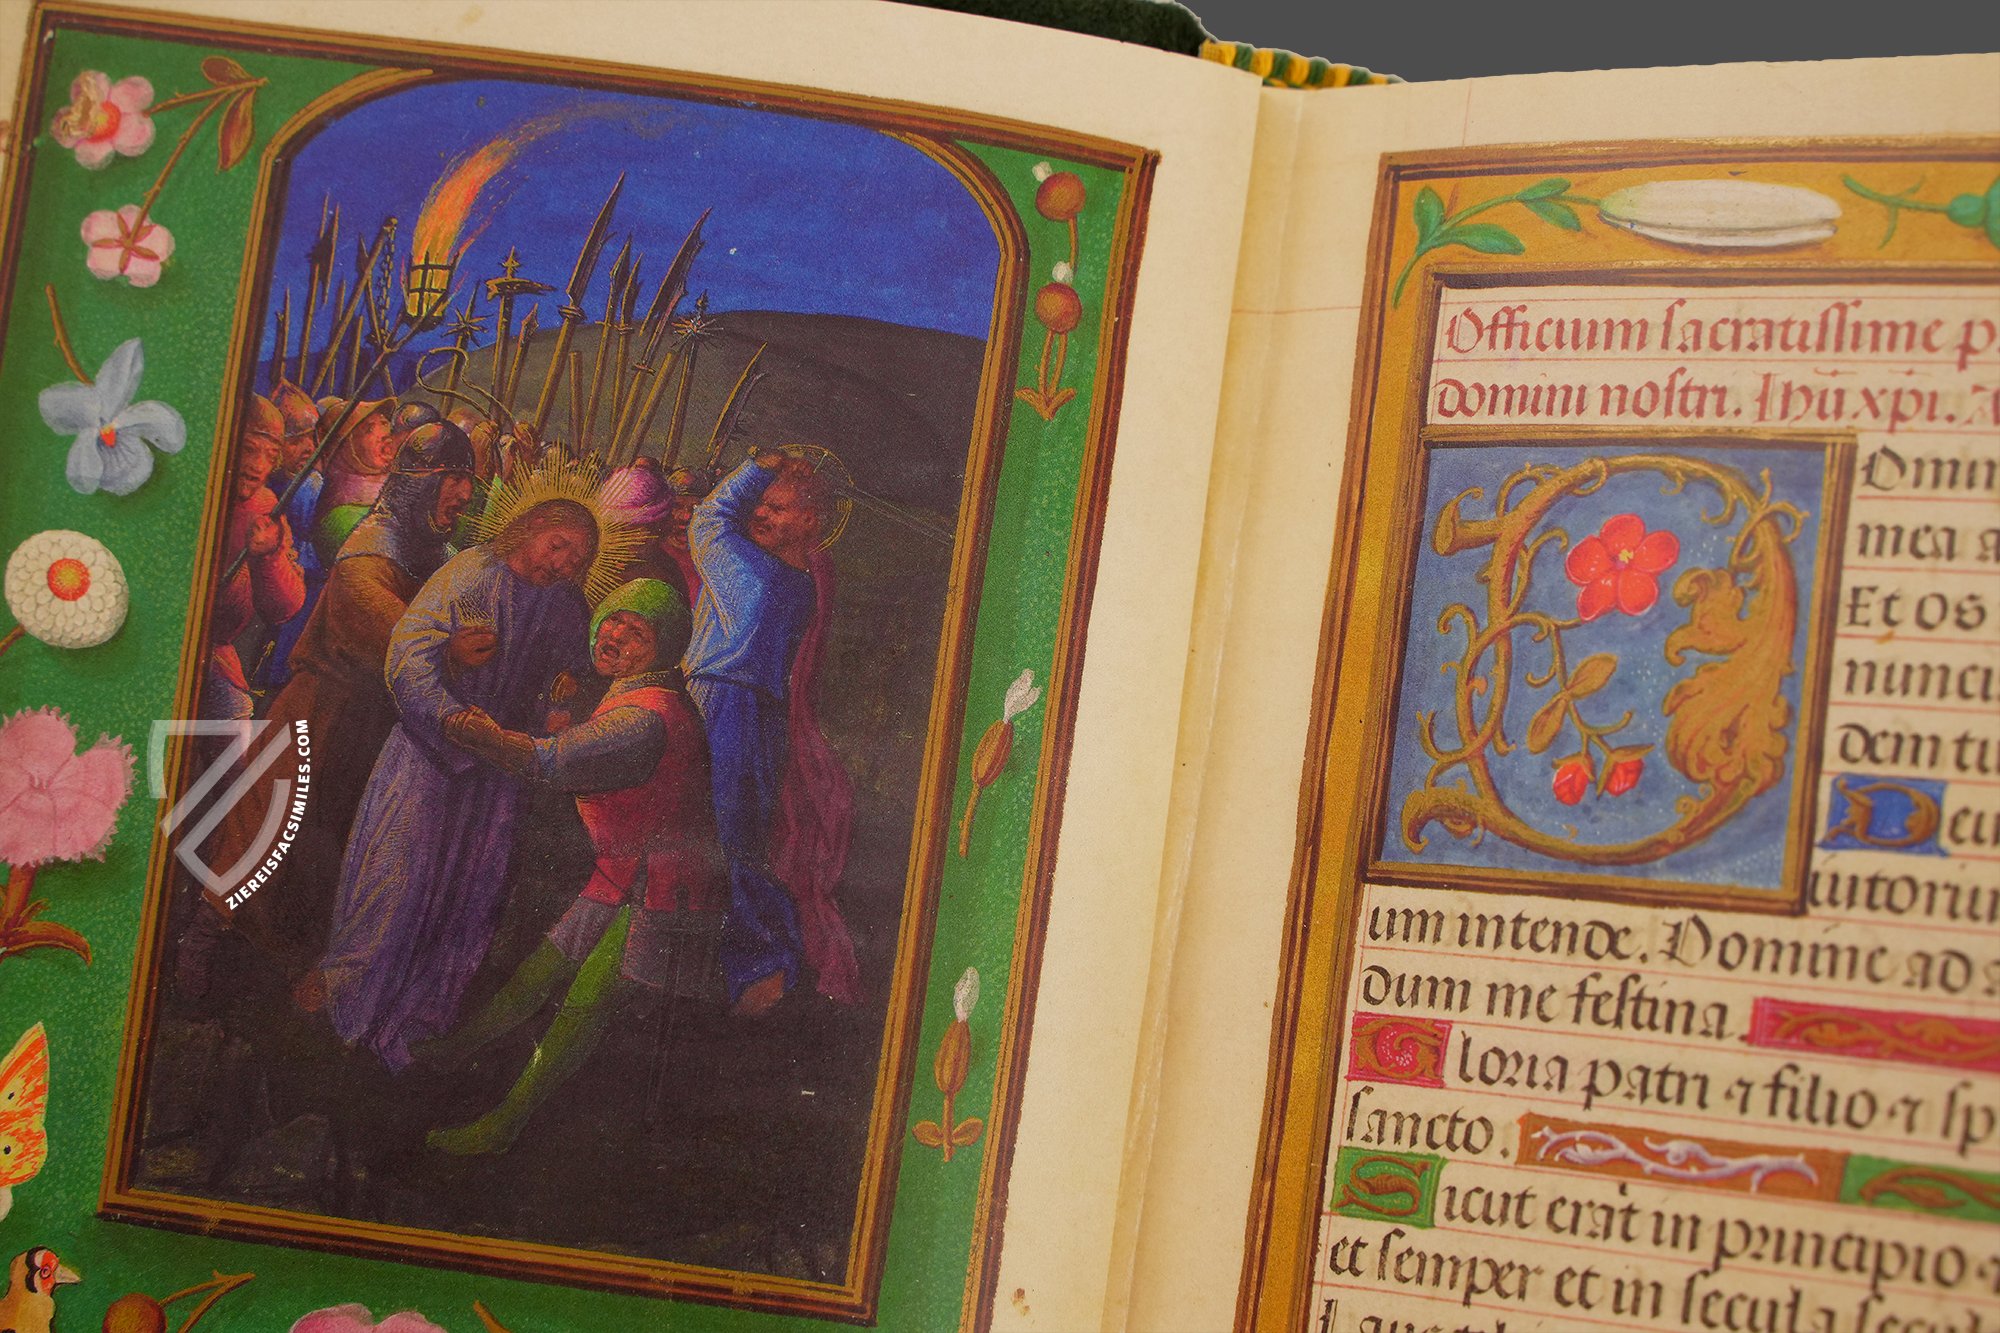 ZIEREISFACSIMILES.COM
Officium sacratissime p
domini nostri. Ihū xpi.
Omin
mea a
Et os
nunci
dem tu
Deu
iutoriu
um intende. Domine ad a
dum me festina.
Gloria patri ⁊ filio ⁊ sp
sancto.
Sicut erat in principio ⁊
et semper et in secula secul